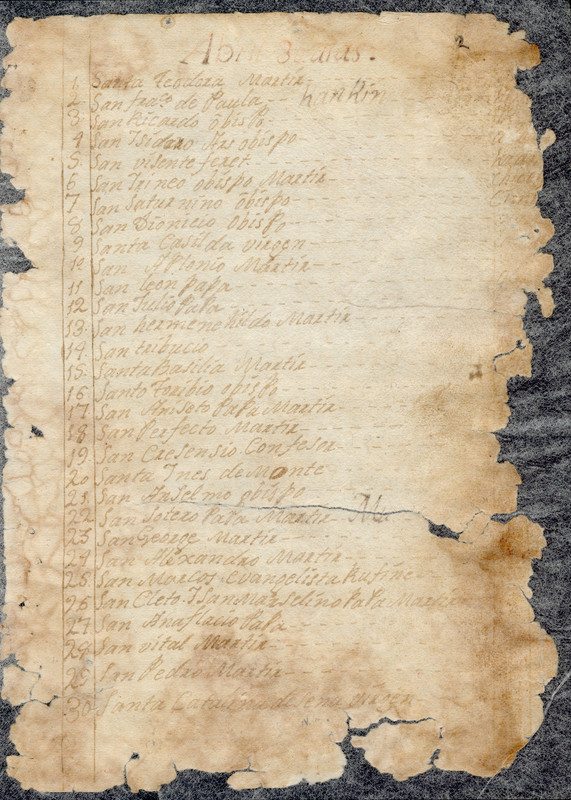 2
Abril
1 Santa Teodora Martir
2 San fraco de Paula hankin
3 San Ricardo obispo
4 San Isidaro Arsobispo
5 San visente feret
6 San Irineo obispo Martir
7 San Saturnino obispo
8 San Dionicio obispo
9 Santa Casilda virgen
10 San Apolonio Martir
11 San leon papa
12 San Julio Papa
13 San hermenehildo Martir
14 San tribucio
15 Santa Basilia Martir
16 Santo Toribio opispo
17 San Aniseto Papa Martir
18 San Perfecto Martir
19 San Cresensio Confesor
20 Santa Ines de Monte
21 San Anselmo obispo
22 San Sotero Papa Martir
23 San George Martir
24 San Alexandro Martir
25 San Marcos Evangelista
26 San Cleto I San Marselino Papa Martir
27 San Anastacio Papa
28 San vital Martir
29 San Pedro Martir
30 Santa Catalina